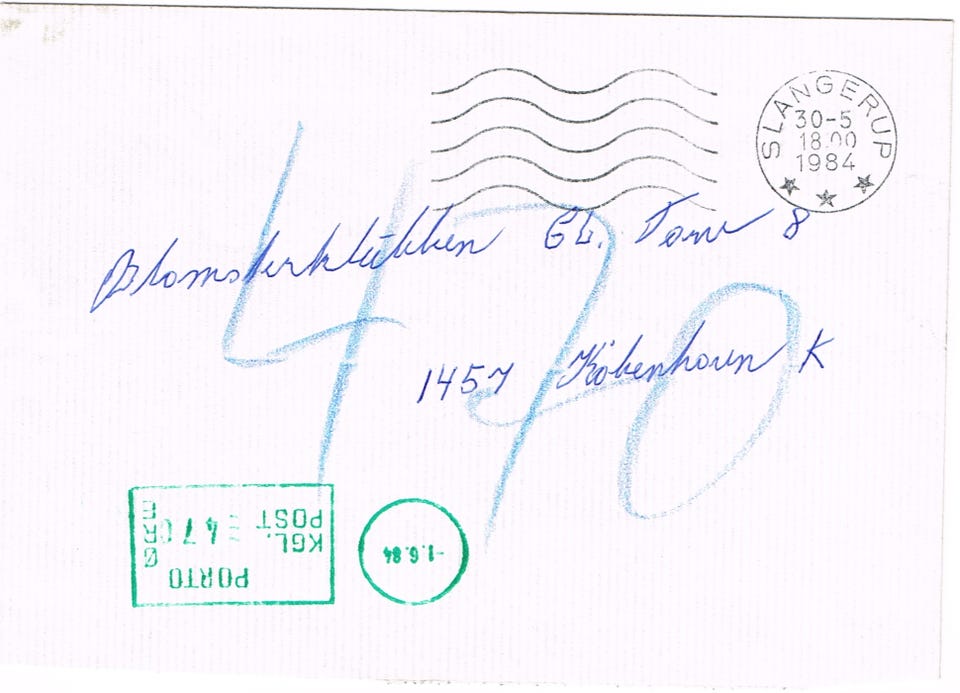 SLANGERUP
30-5
18.00
1984
Blomsterklubben Gl. Torv 8
1457 København K
470
KGL.
POST
470
ØRE
PORTO
-1.6.84